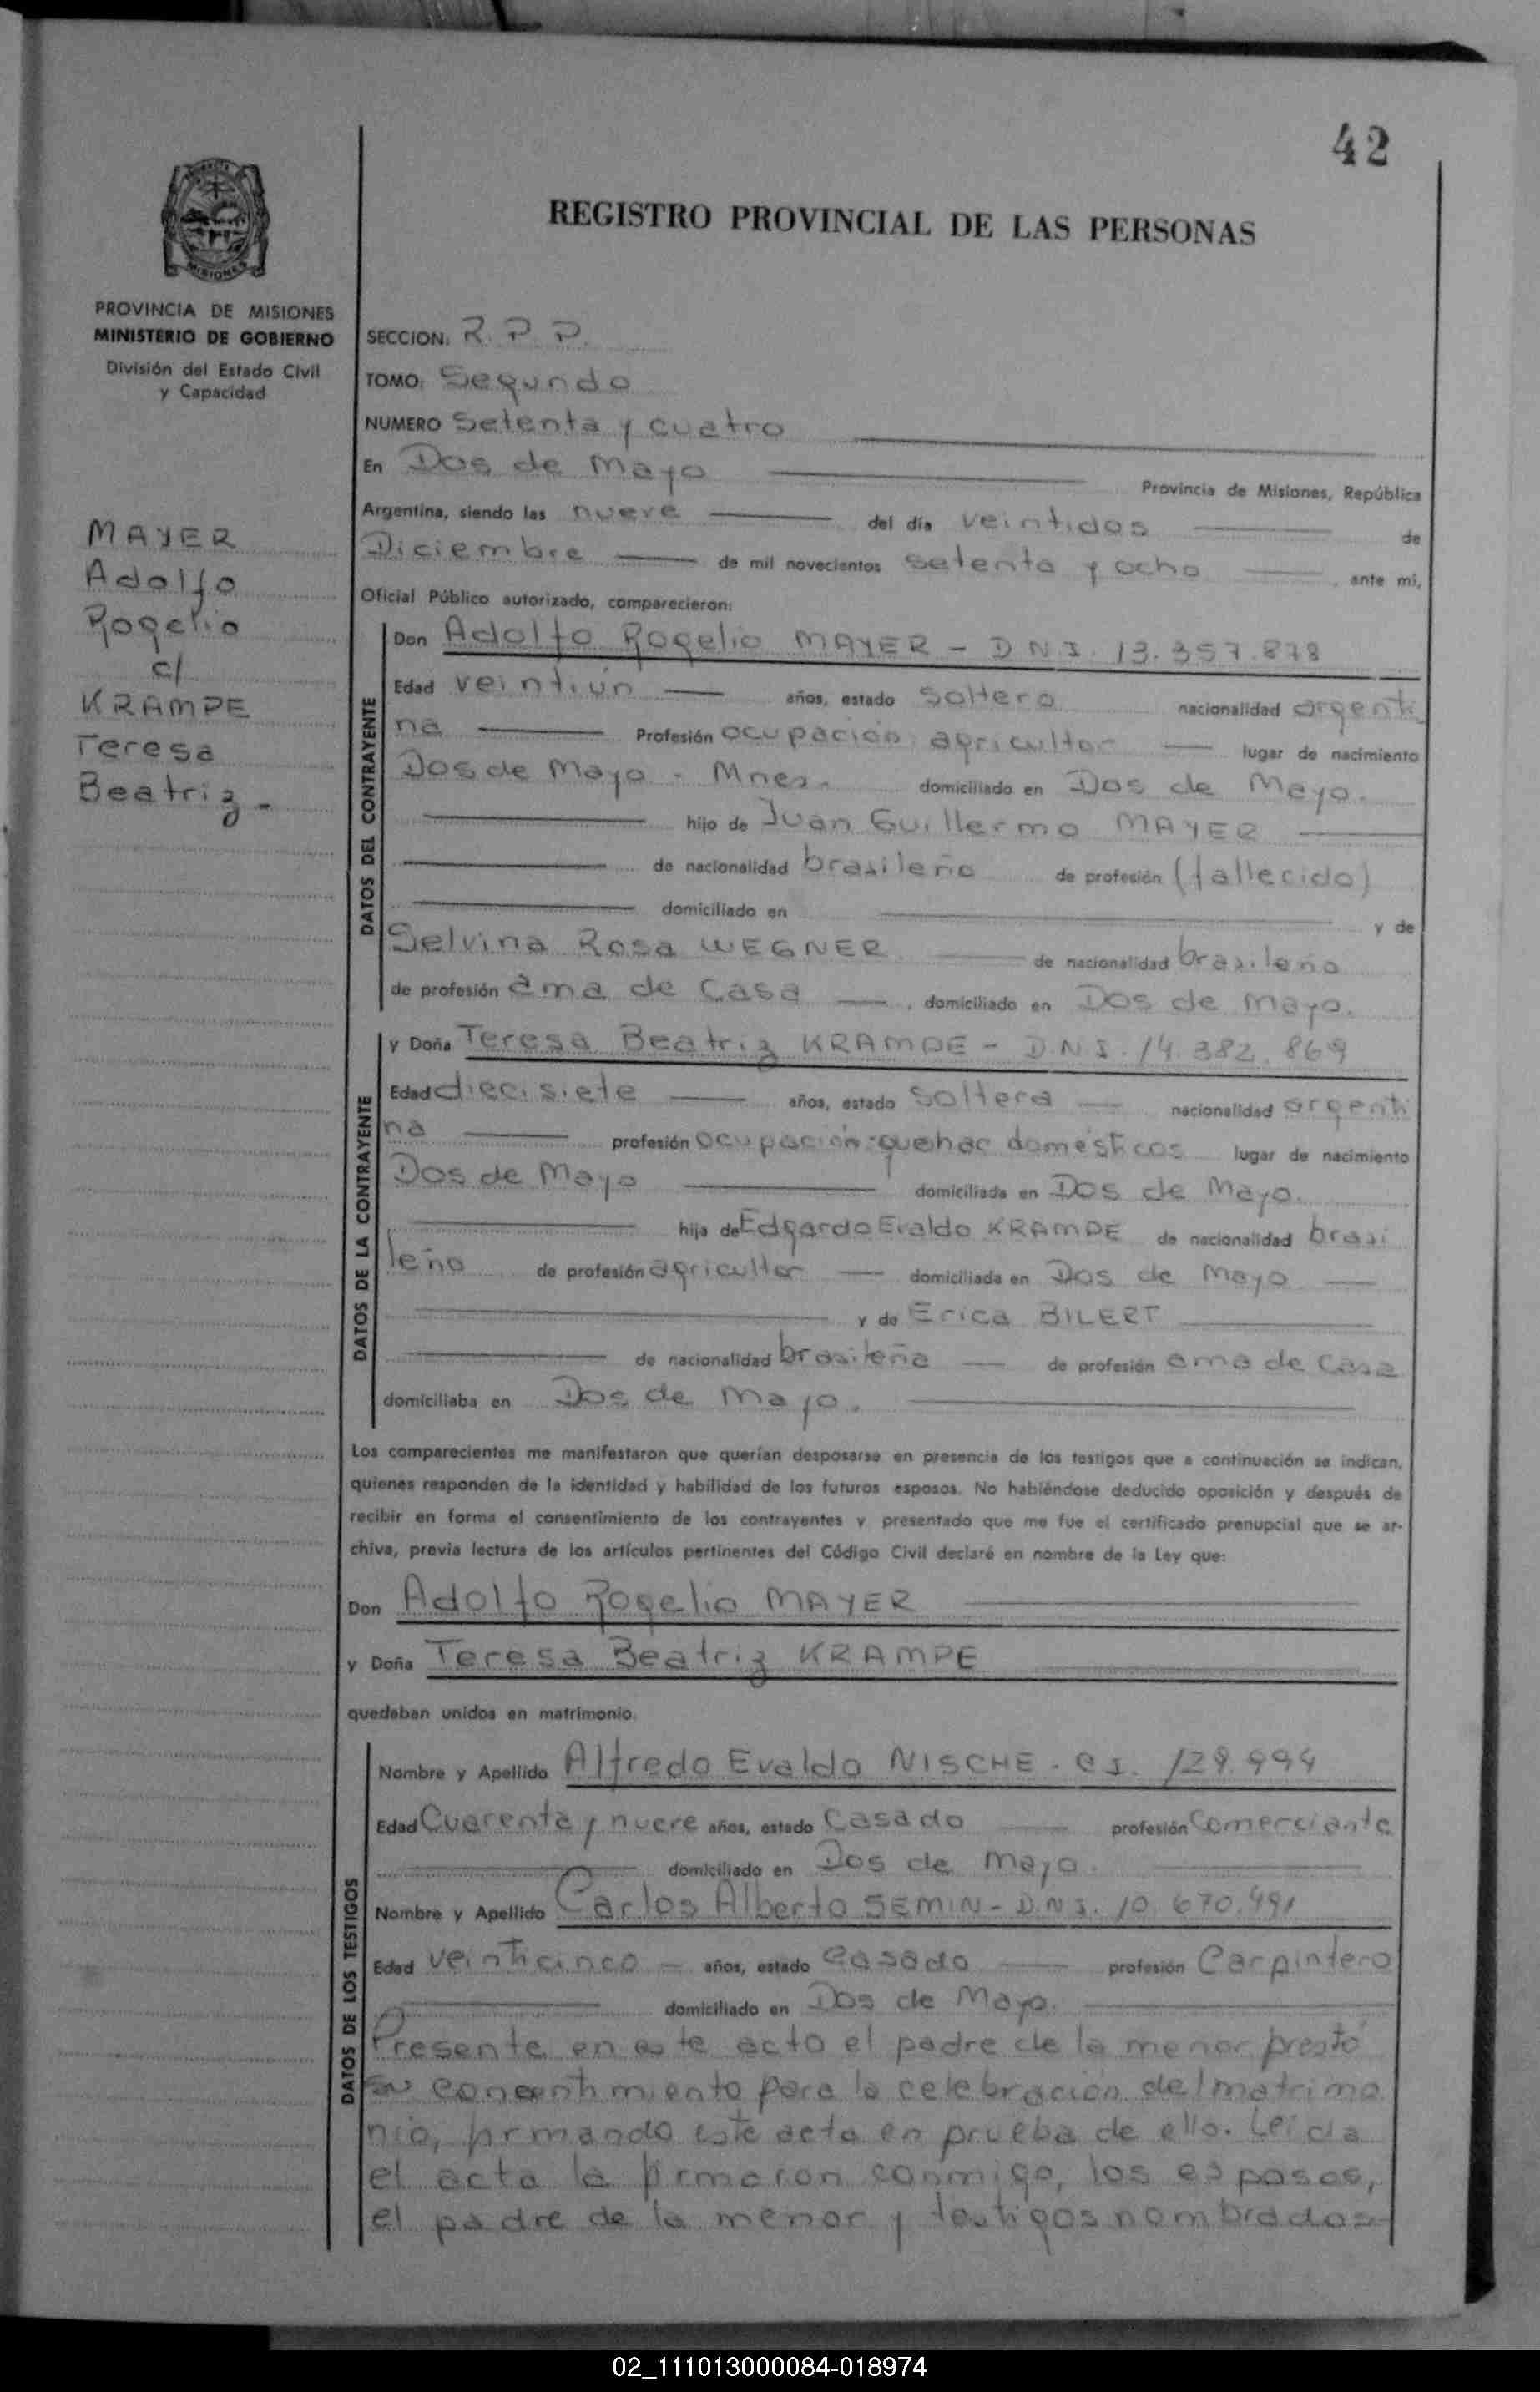 42
REGISTRO PROVINCIAL DE LAS PERSONAS
MISIONES
PROVINCIA DE MISIONES
MINISTERIO DE GOBIERNO
División del Estado Civil
y Capacidad
MAYER
Adolfo
Rogelio
c/
KRAMPE
Teresa
Beatriz.-
SECCION. R. P. P.
TOMO: Segundo
NUMERO Setenta y cuatro
En Dos de Mayo Provincia de Misiones, República
Argentina, siendo las nueve del día veintidos de
Diciembre de mil novecientos setenta y ocho, ante mi,
Oficial Público autorizado, comparecieron:
DATOS DEL CONTRAYENTE
Don Adolfo Rogelio MAYER - D N I. 13.357.878
Edad veintiún años, estado soltero nacionalidad argenti
na Profesión ocupación: agricultor lugar de nacimiento
Dos de Mayo - Mnes. domiciliado en Dos de Mayo.
hijo de Juan Guillermo MAYER
de nacionalidad brasileño de profesión (fallecido)
domiciliado en y de
Selvina Rosa WEGNER de nacionalidad brasileña
de profesión ama de casa, domiciliado en Dos de Mayo.
DATOS DE LA CONTRAYENTE
y Doña Teresa Beatriz KRAMPE - D.N.I. 14.382.869
Edad diecisiete años, estado soltera nacionalidad argenti
na profesión ocupación: quehac domésticos lugar de nacimiento
Dos de Mayo domiciliada en Dos de Mayo.
hija de Edgardo Evaldo KRAMPE de nacionalidad brasi
leño de profesión agricultor domiciliada en Dos de Mayo
y de Erica BILERT
de nacionalidad brasileña de profesión ama de casa
domiciliaba en Dos de Mayo.
Los comparecientes me manifestaron que querían desposarse en presencia de los testigos que a continuación se indican,
quienes responden de la identidad y habilidad de los futuros esposos. No habiéndose deducido oposición y después de
recibir en forma el consentimiento de los contrayentes y presentado que me fue el certificado prenupcial que se ar-
chiva, previa lectura de los artículos pertinentes del Código Civil declaré en nombre de la Ley que:
Don Adolfo Rogelio MAYER
y Doña Teresa Beatriz KRAMPE
quedaban unidos en matrimonio.
DATOS DE LOS TESTIGOS
Nombre y Apellido Alfredo Evaldo NISCHE - C I. 129.994
Edad Cuarenta y nueve años, estado Casado profesión Comerciante
domiciliado en Dos de Mayo.
Nombre y Apellido Carlos Alberto SEMIN - D.N.I. 10.670.491
Edad veinticinco años, estado casado profesión Carpintero
domiciliado en Dos de Mayo.
Presente en este acto el padre de la menor prestó
su consentimiento para la celebración del matrimo
nio, firmando este acta en prueba de ello. Leída
el acta la firmaron conmigo, los esposos,
el padre de la menor y testigos nombrados
02_111013000084-018974